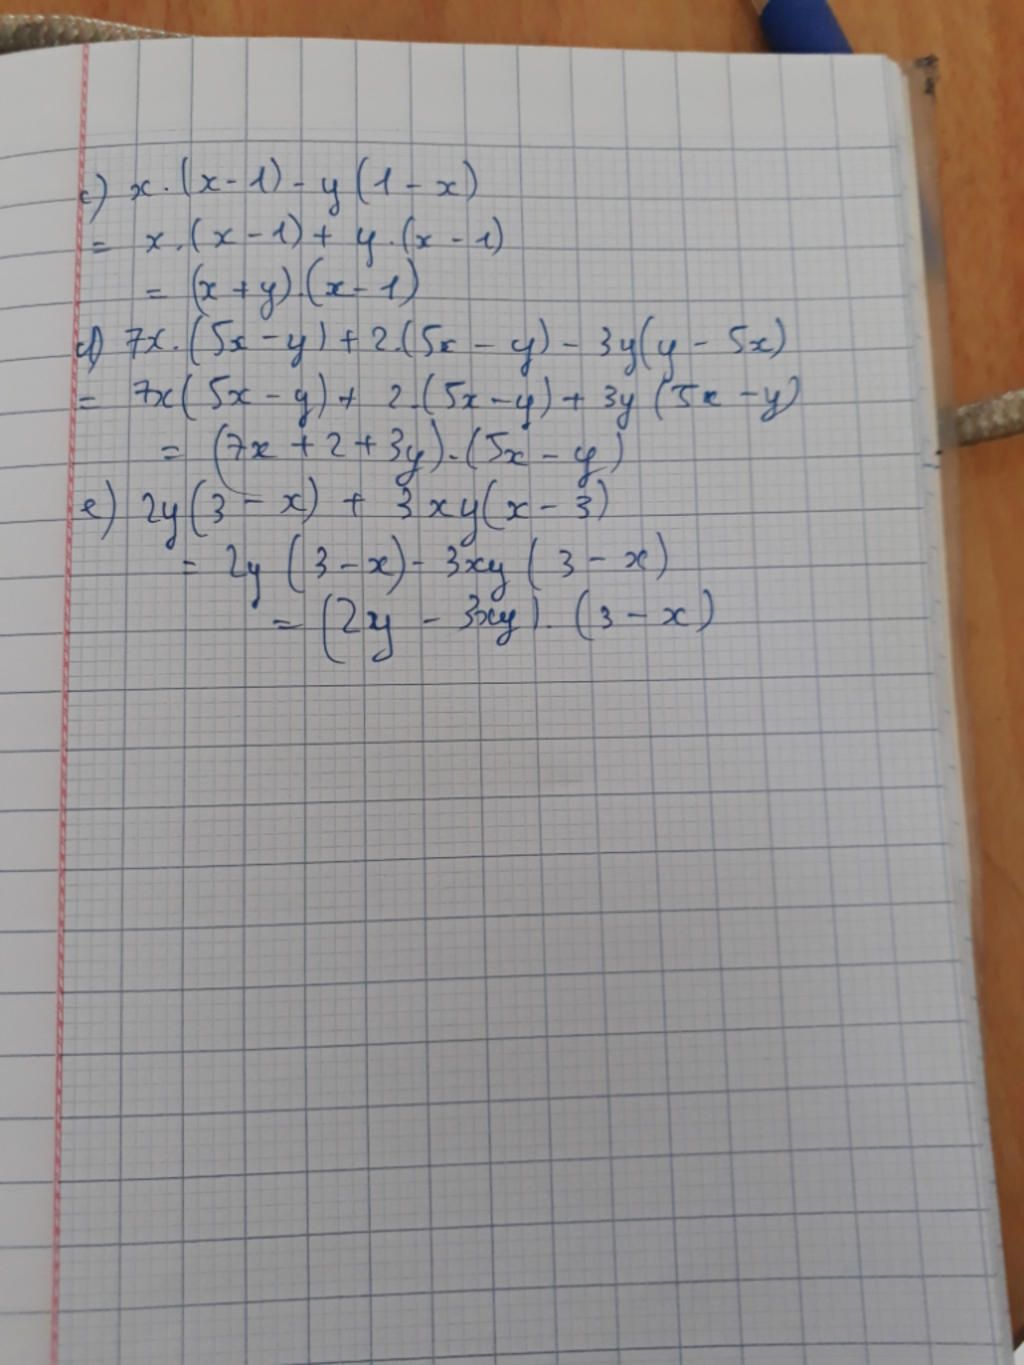 c) x.(x-1) - y(1-x)
= x.(x-1) + y.(x-1)
= (x+y).(x-1)
d) 7x.(5x-y) + 2.(5x-y) - 3y(y-5x)
= 7x(5x-y) + 2.(5x-y) + 3y(5x-y)
= (7x+2+3y).(5x-y)
e) 2y(3-x) + 3xy(x-3)
= 2y(3-x) - 3xy(3-x)
= (2y-3xy).(3-x)